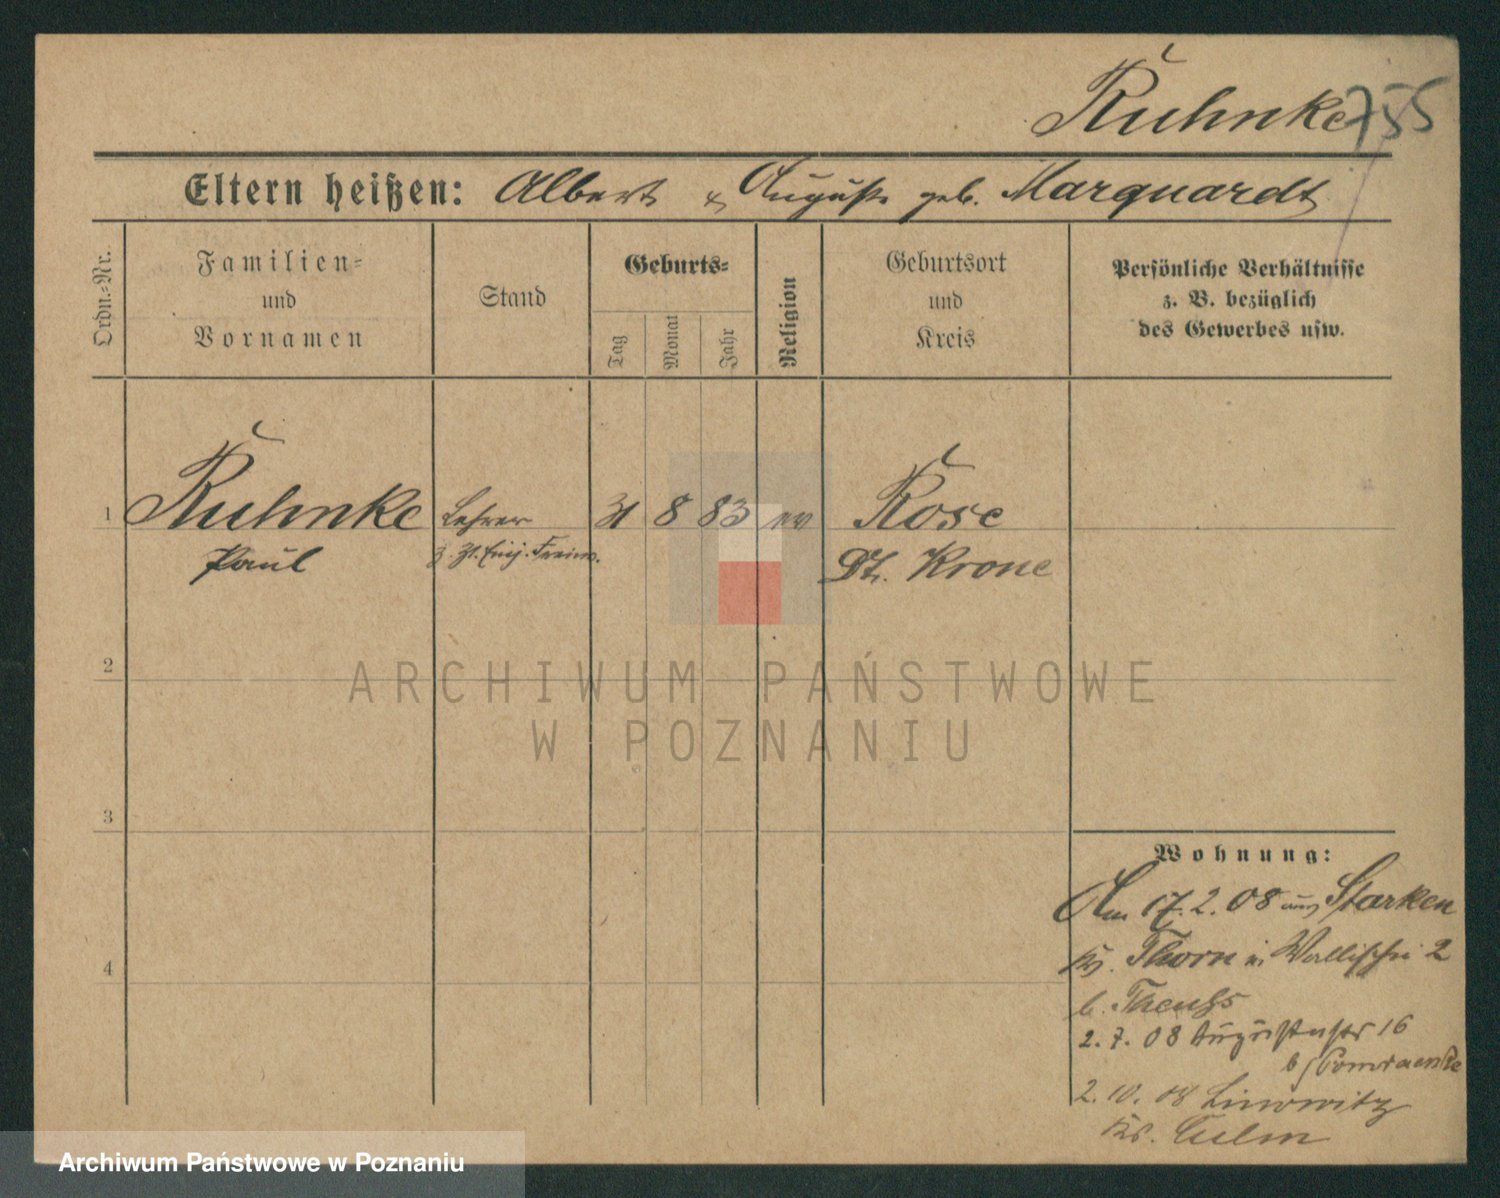 Kuhnke 755
Eltern heißen: Albert & Auguste geb. Marquardt
Ordn.-Nr.
Familien-
und
Vornamen
Stand
Geburts-
Tag
Monat
Jahr
Religion
Geburtsort
und
Kreis
Persönliche Verhältnisse
z. B. bezüglich
des Gewerbes usw.
1 Kuhnke Lehrer 31 8 83 ev Rose
Paul z. Zt. Einj. Freiw. Dt. Krone
2
3
4
Wohnung:
Am 17.2.08 aus
Kr. Thorn in Wallischei 2
b. Theuss
2.7.08 Augustastr 16
b
2.10.08
Kr. Culm
ARCHIWUM PAŃSTWOWE
W POZNANIU
Archiwum Państwowe w Poznaniu